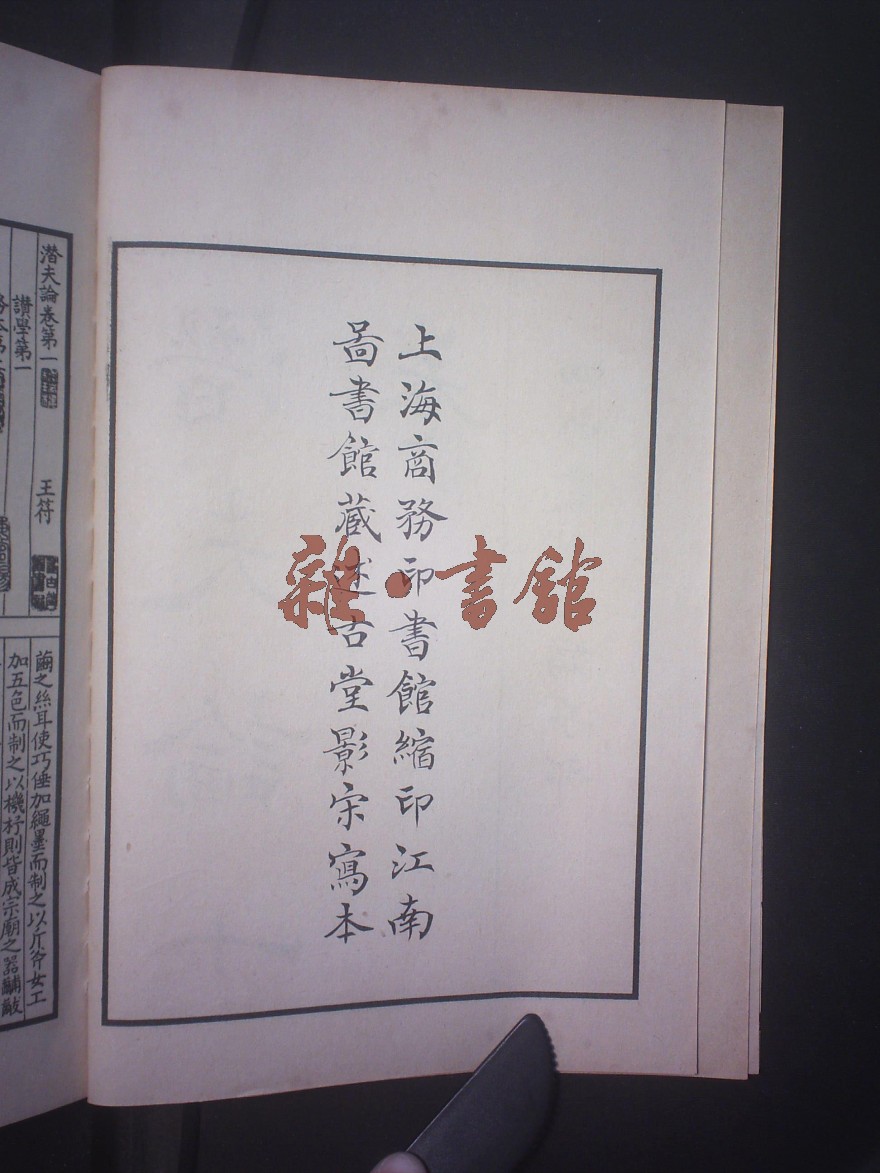 上海商務印書館縮印江南
啚書館藏述古堂影宋寫本
雜·書館
潛夫論卷第一
王符
讃學第一
繭之絲耳使巧倕加繩墨而制之以斤斧女工
加五色而制之以機杼則皆成宗廟之器黼黻